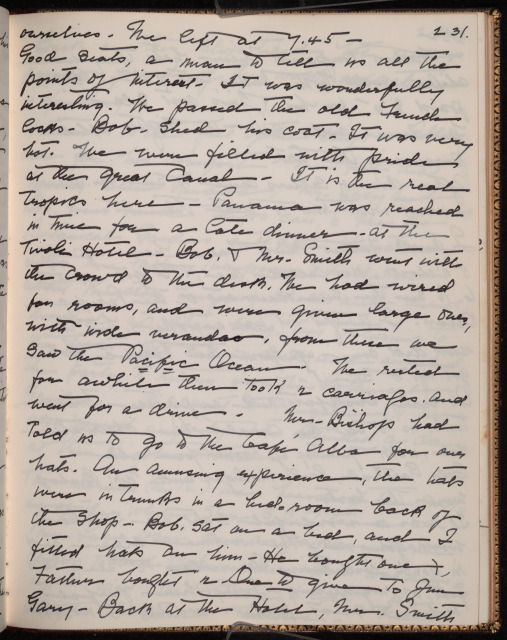 231.
ourselves. We left at 7.45 -
Good seats, a man to tell us all the
points of interest - It was wonderfully
interesting. We passed the old French
locks - Bob - shed his coat - It was very
hot. We were filled with pride
at the great Canal - It is the real
tropics here - Panama was reached
in time for a late dinner - at the
Tivoli Hotel - Bob, & Mrs. Smith went with
the crowd to the desk. We had wired
for rooms, and were given large ones,
with wide verandas, from there we
saw the Pacific Ocean. We rested
for awhile then took 2 carriages. and
went for a drive. Mrs - Bishop had
told us to go to the Café Alba for our
hats. An amusing experience, the hats
were in trunks in a bed-room back of
the shop - Bob, sat on a bed, and I
fitted hats on him - He bought one &,
Father bought 2 - One to give to
Gary - Back at the Hotel, Mrs. Smith